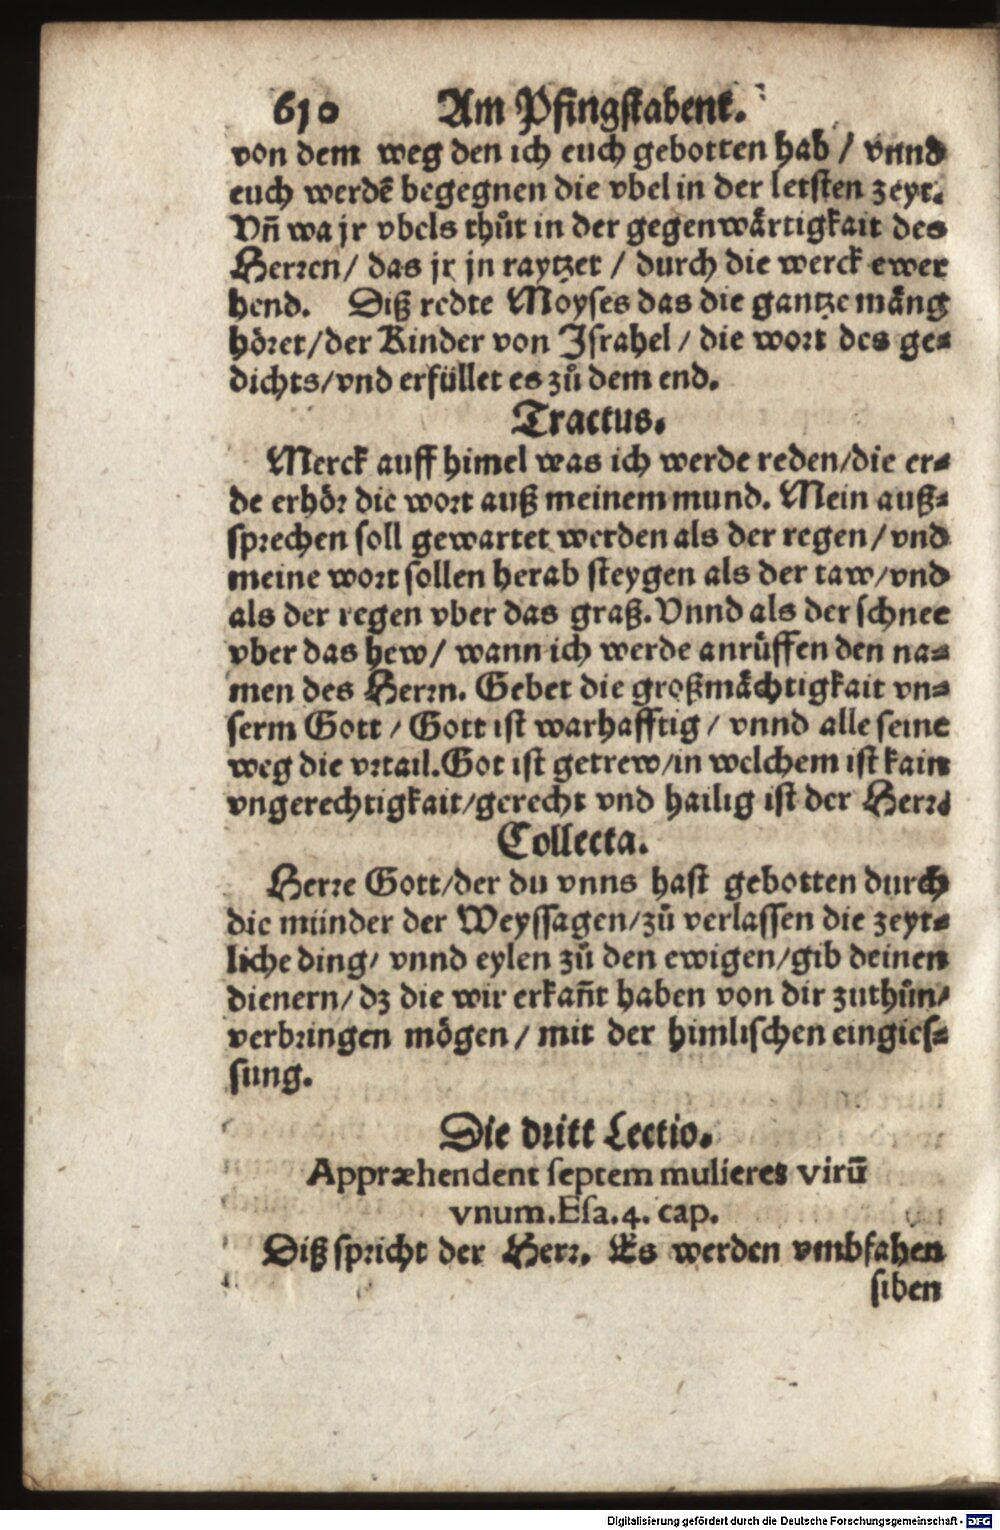 610 Am Pfingstabent.
von dem weg den ich euch gebotten hab / vnnd
euch werdē begegnen die vbel in der letsten zeyt.
Vn̄ wa jr vbels thuͦt in der gegenwaͤrtigkait des
Herren / das jr jn raytzet / durch die werck ewer
hend. Diß redte Moyses das die gantze maͤng
hoͤret / der Kinder von Israhel / die wort des ge⸗
dichts / vnd erfüllet es zuͦ dem end.
Tractus.
Merck auff himel was ich werde reden / die er⸗
de erhoͤr die wort auß meinem mund. Mein auß⸗
sprechen soll gewartet werden als der regen / vnd
meine wort sollen herab steygen als der taw / vnd
als der regen vber das graß. Vnnd als der schnee
vber das hew / wann ich werde anruͤffen den na⸗
men des Herrn. Gebet die großmaͤchtigkait vn⸗
serm Gott / Gott ist warhafftig / vnnd alle seine
weg die vrtail. Got ist getrew / in welchem ist kain
vngerechtigkait / gerecht vnd hailig ist der Herr.
Collecta.
Herre Gott / der du vnns hast gebotten durch
die münder der Weyssagen / zuͦ verlassen die zeyt⸗
liche ding / vnnd eylen zuͦ den ewigen / gib deinen
dienern / dz die wir erkan̄t haben von dir zuthuͦn /
verbringen moͤgen / mit der himlischen eingies⸗
sung.
Die dritt Lectio.
Appræhendent septem mulieres virū
vnum. Esa. 4. cap.
Diß spricht der Herr. Es werden vmbfahen
siben
Digitalisierung gefördert durch die Deutsche Forschungsgemeinschaft - DFG